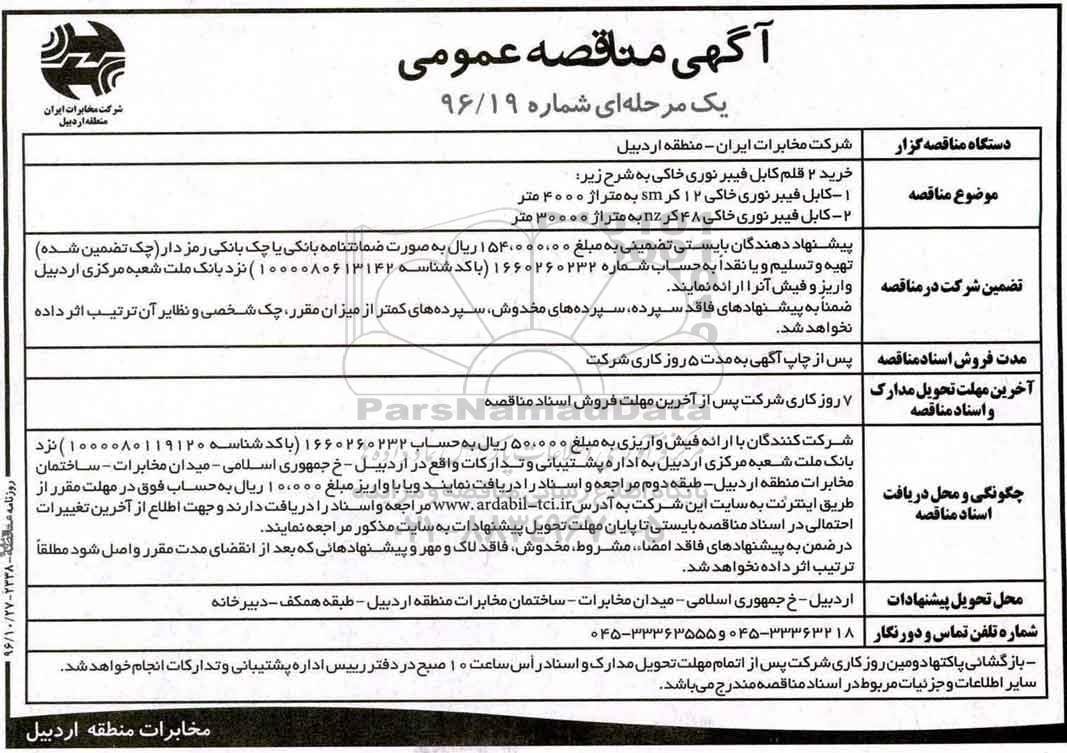 آگهی مناقصه عمومی
یک مرحله‌ای شماره ۹۶/۱۹
شرکت مخابرات ایران
منطقه اردبیل
دستگاه مناقصه گزار
شرکت مخابرات ایران – منطقه اردبیل
موضوع مناقصه
خرید ۲ قلم کابل فیبر نوری خاکی به شرح زیر:
۱–کابل فیبر نوری خاکی ۱۲ کر sm به متراژ ۴۰۰۰ متر
۲–کابل فیبر نوری خاکی ۴۸ کر nz به متراژ ۳۰۰۰۰ متر
تضمین شرکت در مناقصه
پیشنهاد دهندگان بایستی تضمینی به مبلغ ۱۵۴،۰۰۰،۰۰ ریال به صورت ضمانتنامه بانکی یا چک بانکی رمز دار (چک تضمین شده)
تهیه و تسلیم و یا نقداً به حساب شماره ۱۶۶۰۲۶۰۲۳۲ (با کد شناسه ۱۰۰۰۰۸۰۶۱۳۱۴۲) نزد بانک ملت شعبه مرکزی اردبیل
واریز و فیش آنرا ارائه نمایند.
ضمناً به پیشنهادهای فاقد سپرده، سپرده‌های مخدوش، سپرده‌های کمتر از میزان مقرر، چک شخصی و نظایر آن ترتیب اثر داده
نخواهد شد.
مدت فروش اسناد مناقصه
پس از چاپ آگهی به مدت ۵ روز کاری شرکت
آخرین مهلت تحویل مدارک
و اسناد مناقصه
۷ روز کاری شرکت پس از آخرین مهلت فروش اسناد مناقصه
چگونگی و محل دریافت
اسناد مناقصه
شرکت کنندگان با ارائه فیش واریزی به مبلغ ۵۰،۰۰۰ ریال به حساب ۱۶۶۰۲۶۰۲۳۲ (با کد شناسه ۱۰۰۰۰۸۰۱۱۹۱۲۰) نزد
بانک ملت شعبه مرکزی اردبیل به اداره پشتیبانی و تدارکات واقع در اردبیل – خ جمهوری اسلامی – میدان مخابرات – ساختمان
مخابرات منطقه اردبیل– طبقه دوم مراجعه و اسناد را دریافت نمایند و یا با واریز مبلغ ۱۰،۰۰۰ ریال به حساب فوق در مهلت مقرر از
طریق اینترنت به سایت این شرکت به آدرس www.ardabil-tci.ir مراجعه و اسناد را دریافت دارند و جهت اطلاع از آخرین تغییرات
احتمالی در اسناد مناقصه بایستی تا پایان مهلت تحویل پیشنهادات به سایت مذکور مراجعه نمایند.
در ضمن به پیشنهادهای فاقد امضاء، مشروط، مخدوش، فاقد لاک و مهر و پیشنهادهائی که بعد از انقضای مدت مقرر واصل شود مطلقاً
ترتیب اثر داده نخواهد شد.
محل تحویل پیشنهادات
اردبیل – خ جمهوری اسلامی – میدان مخابرات – ساختمان مخابرات منطقه اردبیل – طبقه همکف –دبیرخانه
شماره تلفن تماس و دورنگار
۰۴۵–۳۳۳۶۳۲۱۸ و ۰۴۵–۳۳۳۶۳۵۵۵
–بازگشائی پاکتها دومین روز کاری شرکت پس از اتمام مهلت تحویل مدارک و اسناد رأس ساعت ۱۰ صبح در دفتر رییس اداره پشتیبانی و تدارکات انجام خواهد شد.
سایر اطلاعات و جزئیات مربوط در اسناد مناقصه مندرج می‌باشد.
مخابرات منطقه اردبیل
ParsNamadData
۰۲۱–۸۸۳۴۹۶۷۰–۵